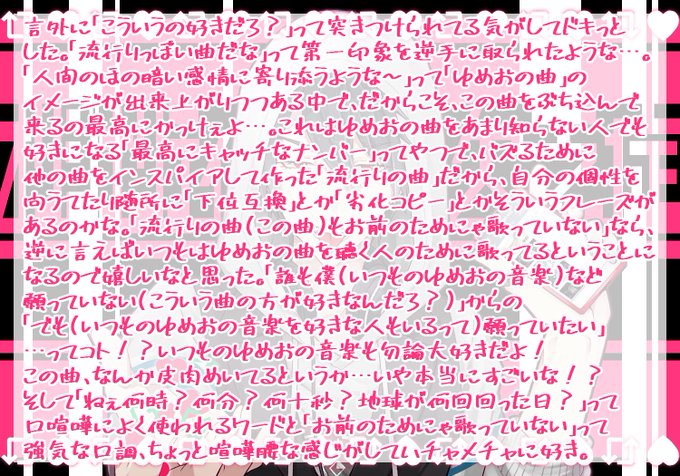 言外に「こういうの好きだろ?」って突きつけられてる気がしてドキっと
した。「流行りっぽい曲だな」って第一印象を逆手に取られたような…。
「人間のほの暗い感情に寄り添うような〜」って「ゆめおの曲」の
イメージが出来上がりつつある中で、だからこそ、この曲をぶち込んで
来るの最高にかっけぇよ…。これはゆめおの曲をあまり知らない人でも
好きになる「最高にキャッチなナンバー」ってやつで、バズるために
他の曲をインスパイアして作った「流行りの曲」だから、自分の個性を
向うてたり随所に「下位互換」とか「劣化コピー」とかそういうフレーズが
あるのかな。「流行りの曲(この曲)もお前のためにゃ歌っていない」なら、
逆に言えばいつもはゆめおの曲を聴く人のために歌ってるということに
なるので嬉しいなと思った。「誰も僕(いつものゆめおの音楽)など
願っていない(こういう曲の方が好きなんだろ?)」からの
「でも(いつものゆめおの音楽を好きな人もいるって)願っていたい」
…ってコト!?いつものゆめおの音楽も勿論大好きだよ!
この曲、なんか皮肉めいてるというか…いや本当にすごいな!?
そして「ねぇ何時?何分?何十秒?地球が何回回った日?」って
口喧嘩によく使われるワードと「お前のためにゃ歌っていない」って
強気な口調、ちょっと喧嘩腰な感じがしていチャメチャに好き。